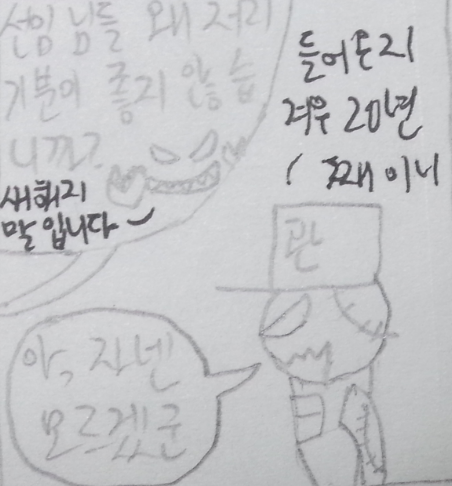 선임 님들 왜 저리
기분이 좋지 않습
니까?
새해지
말입니다~
들어온지
겨우 20년
째이니
관
아, 자넨
모르겠군